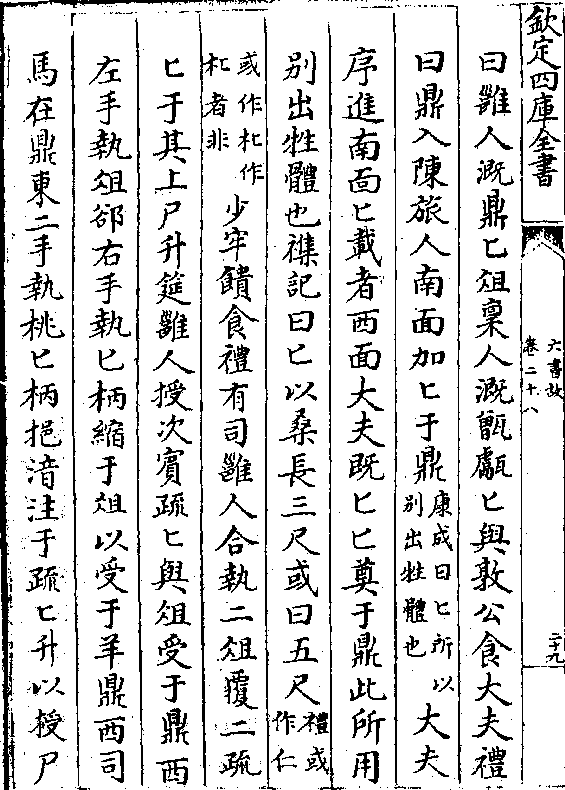 欽定四庫全書
六書故
卷二十八
二十九
曰雝人溉鼎匕俎稟人溉甑甗匕與敦公食大夫禮
曰鼎入陳旅人南面加匕于鼎康成曰匕所以別出牲體也大夫
序進南面匕載者西面大夫既匕匕奠于鼎此所用
别出牲體也襍記曰匕以桑長三尺或曰五尺禮或作仁
或作朼作朼者非少牢饋食禮有司雝人合執二俎覆二疏
匕于其上尸升筵雝人授次賓疏匕與俎受于鼎西
左手執俎郤右手執匕柄縮于俎以受于羊鼎西司
馬在鼎東二手執桃匕柄挹湇注于疏匕升以授尸